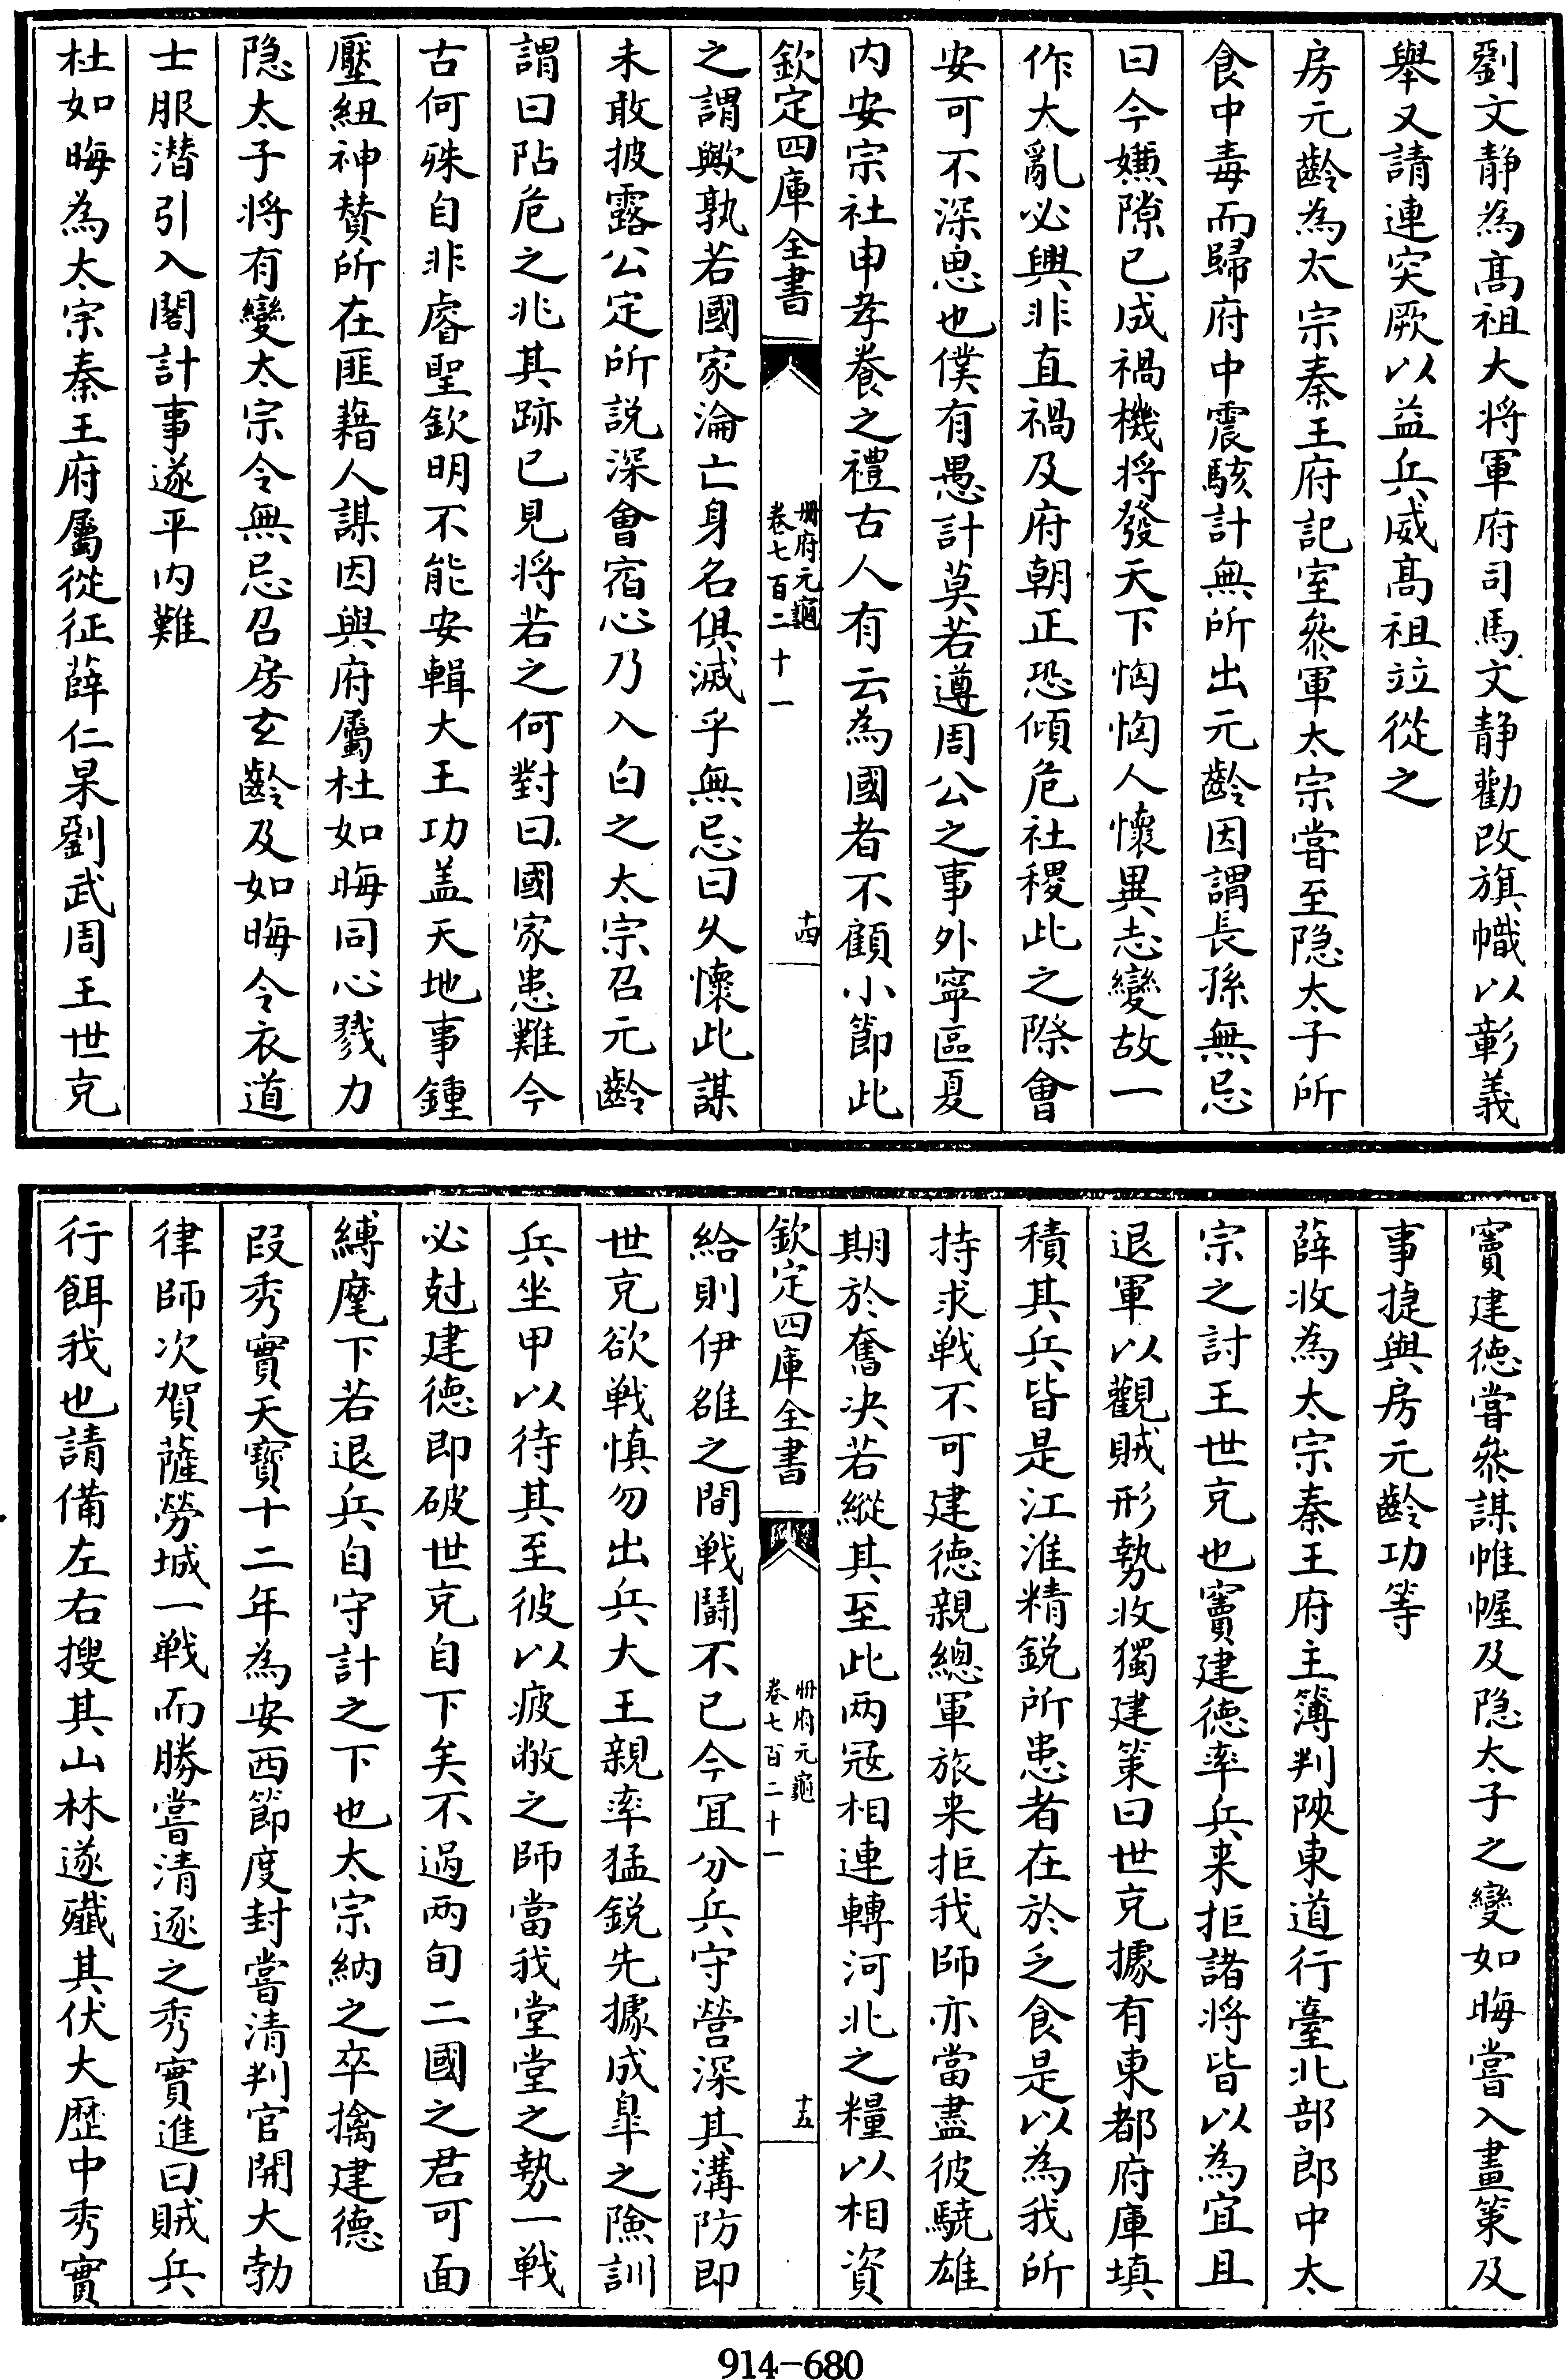 劉文静為髙祖大将軍府司馬文静勸改旗幟以彰義
舉又請連突厥以益兵威髙祖竝從之
房元齡為太宗秦王府記室叅軍太宗嘗至隐太子所
食中毒而歸府中震駭計無所出元齡因謂長孫無忌
曰今嫌隙已成禍機将發天下恟恟人懐異志變故一
作大亂必興非直禍及府朝正恐傾危社稷此之際會
安可不深思也僕有愚計莫若遵周公之事外寜區夏
内安宗社申孝養之禮古人有云為國者不顧小節此
欽定四庫全書
冊府元龜
卷七百二十一
十四
之謂歟孰若國家淪亡身名俱滅乎無忌曰久懐此謀
未敢披露公定所説深會宿心乃入白之太宗召元齡
謂曰阽危之兆其跡已見将若之何對曰國家患難今
古何殊自非睿聖欽明不能安輯大王功盖天地事鍾
壓紐神賛所在匪藉人謀因與府屬杜如晦同心戮力
隐太子将有變太宗令無忌召房玄齡及如晦令衣道
士服潜引入閣計事遂平内難
杜如晦為太宗秦王府屬從征薛仁杲劉武周王世充
竇建徳嘗叅謀帷幄及隐太子之變如晦嘗入畫策及
事捷與房元齡功等
薛收為太宗秦王府主簿判陜東道行臺北部郎中太
宗之討王世充也竇建徳率兵来拒諸将皆以為宜且
退軍以觀賊形勢收獨建策曰世充據有東都府庫填
積其兵皆是江淮精鋭所患者在於乏食是以為我所
持求戰不可建徳親總軍旅来拒我師亦當盡彼驍雄
期於奮决若縱其至此两冦相連轉河北之糧以相資
欽定四庫全書
冊府元龜
卷七百二十一
十五
給則伊雒之間戰鬭不已今宜分兵守營深其溝防即
世充欲戰慎勿出兵大王親率猛鋭先據成臯之險訓
兵坐甲以待其至彼以疲敝之師當我堂堂之勢一戰
必尅建徳即破世充自下矣不過两旬二國之君可面
縛麾下若退兵自守計之下也太宗納之卒擒建徳
段秀實天寳十二年為安西節度封嘗清判官開大勃
律師次賀薩勞城一戰而勝嘗清逐之秀實進曰賊兵
行餌我也請備左右搜其山林遂殱其伏大歴中秀實
914-680